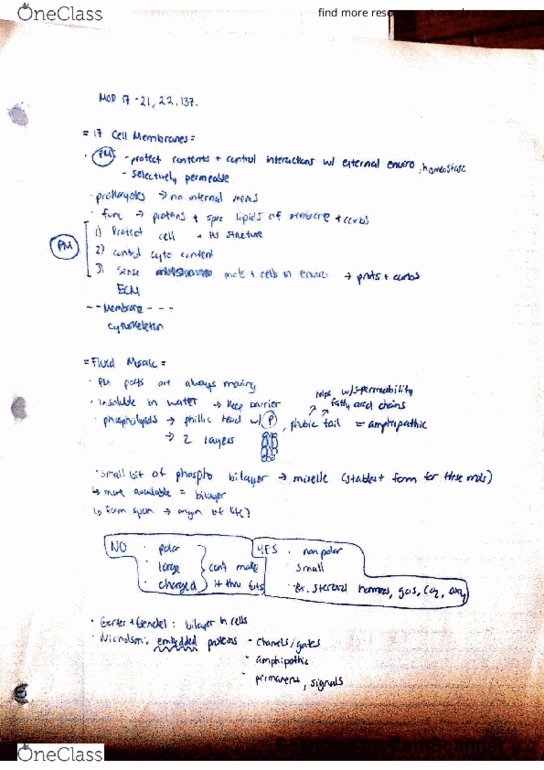 OneClass
find more resources at oneclass.com
MOD 17-21, 22.137.
= 17 Cell Membranes =
· PM - protect contents + control interactions w/ external enviro, homeostasis
- selectively permeable
· prokaryotes → no internal mems
· func → proteins + spec lipids of membrane + carbs
PM
1) Protect cell + its structure
2) control cyto content
3) Sense mols + cells in enviro → prots + carbs
ECM
-- Membrane ---
cytoskeleton
= Fluid Mosaic =
· PM parts are always moving
· insoluble in water → keep barrier
helps w/ s-permeability
fatty acid chains
· phospholipids → phillic head w/ P, phobic tail = amphipathic
→ 2 layers
· small bit of phospho bilayer → micelle (stablest form for these mols)
↳ more available = bilayer
↳ form spon → origin of life?
NO · polar
· large
· charged
can't make it thru
YES · nonpolar
small
· Ex. steroid hormones, gas, CO2, oxy
· Gorter + Grendel: bilayer in cells
· Nicholson: embedded proteins - channels/gates
- amphipathic
- , signals
OneClass